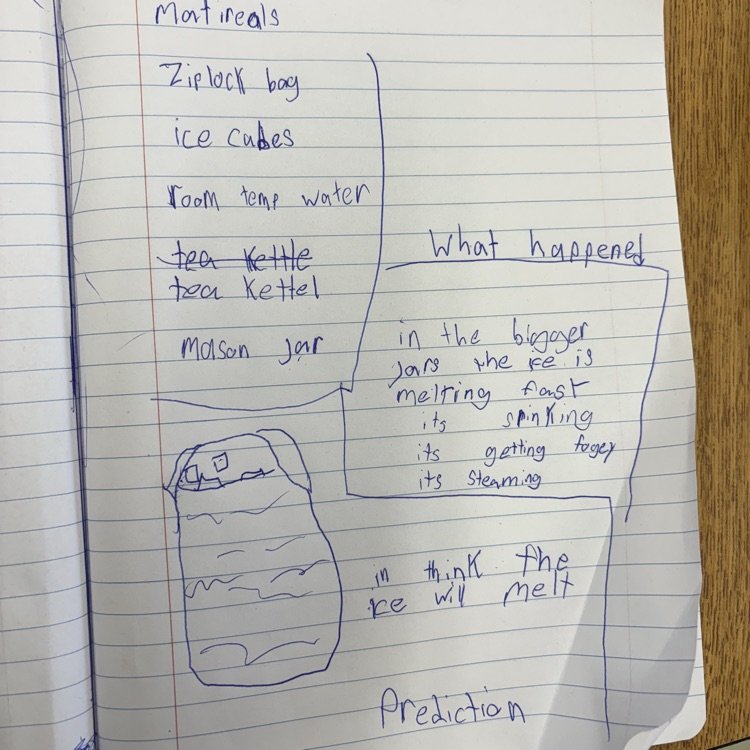 Matireals
Ziplock bag
ice cubes
room temp water
tea kettle
tea kettel
mason jar
What happened
in the bigger
jars the ice is
melting fast
its spinking
its getting fogey
its steaming
in think the
ice will melt
Prediction